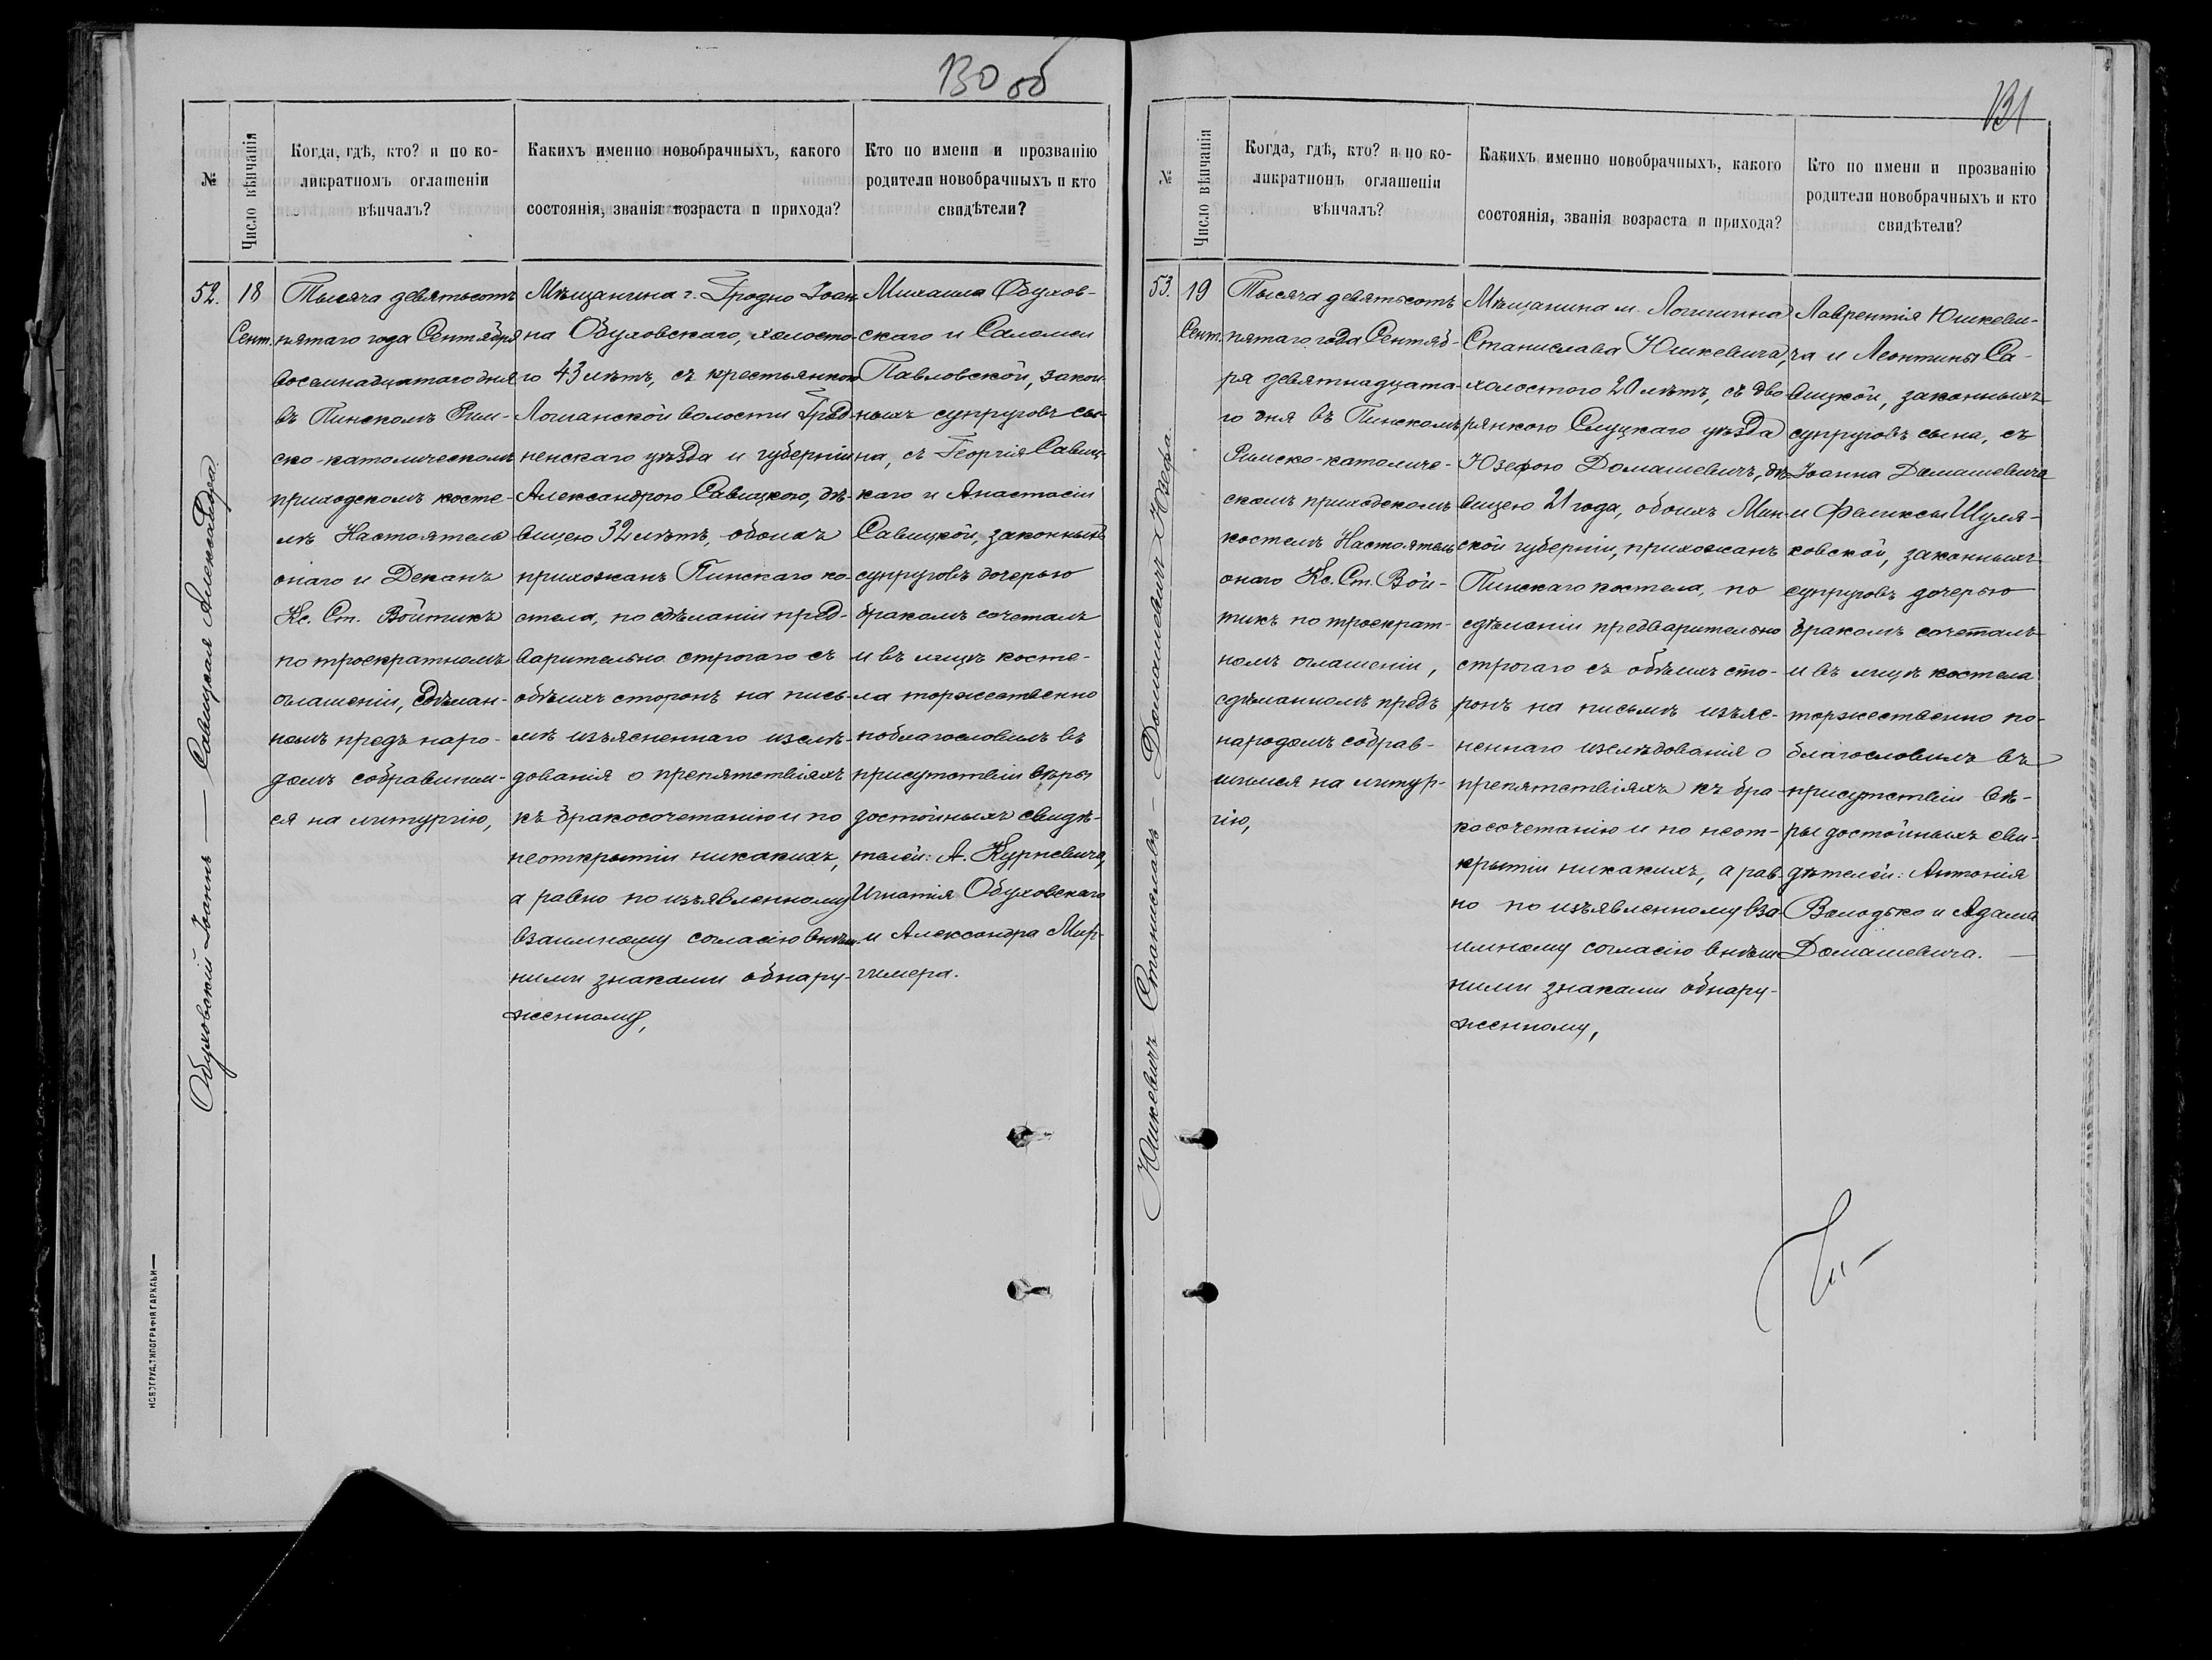 130 об
№
Число вѣнчанія
Когда, гдѣ, кто? и по ко-
ликратномъ оглашеніи
вѣнчалъ?
Какихъ именно новобрачныхъ, какого
состоянія, званія возраста и прихода?
Кто по имени и прозванію
родители новобрачныхъ и кто
свидѣтели?
Обуховскій Іоаннъ — Савицкая Александра
52.
18
Сент.
Тысяча девятьсотъ
пятаго года Сентября
восемнадцатаго дня
въ Пинскомъ Рим-
ско-католическомъ
приходскомъ косте-
лѣ Настоятель
онаго и Деканъ
Кс. Ст. Войтикъ
по троекратномъ
оглашеніи, сдѣлан-
номъ предъ наро-
домъ собравшим-
ся на литургію,
Мѣщанина г. Гродно Іоан-
на Обуховскаго, холосто-
го 43 лѣтъ, съ крестьянкою
Лошанской волости Грод-
ненскаго уѣзда и губерніи
Александрою Савицкою, дѣ-
вицею 32 лѣтъ, обоихъ
прихожанъ Пинскаго ко-
стела, по сдѣланіи пред-
варительно строгаго съ
обѣихъ сторонъ на пись-
мѣ изъясненнаго изслѣ-
дованія о препятствіяхъ
къ бракосочетанію и по
неоткрытіи никакихъ,
а равно по изъявленному
взаимному согласію внѣш-
ними знаками обнару-
женному,
Михаила Обухов-
скаго и Саломеи
Павловской, закон-
ныхъ супруговъ сы-
на, съ Георгія Савиц-
каго и Анастасіи
Савицкой, законныхъ
супруговъ дочерью
бракомъ сочеталъ
и въ лицѣ косте-
ла торжественно
поблагословилъ въ
присутствіи вѣры
достойныхъ свидѣ-
телей: А. Курневича,
Игнатія Обуховскаго
и Александра Мир-
гимера.
НОВОГРУД. ТИПОГРАФІЯ ГАРКАВИ
131
№
Число вѣнчанія
Когда, гдѣ, кто? и по ко-
ликратномъ оглашеніи
вѣнчалъ?
Какихъ именно новобрачныхъ, какого
состоянія, званія возраста и прихода?
Кто по имени и прозванію
родители новобрачныхъ и кто
свидѣтели?
Юшкевичъ Станиславъ — Домашевичъ Юзефа.
53.
19
Сент.
Тысяча девятьсотъ
пятаго года Сентяб-
ря девятнадцата-
го дня въ Пинскомъ
Римско-католиче-
скомъ приходскомъ
костелѣ Настоятель
онаго Кс. Ст. Вой-
тикъ по троекрат-
номъ оглашеніи,
сдѣланномъ предъ
народомъ собрав-
шимся на литур-
гію,
Мѣщанина м. Логишина
Станислава Юшкевича,
холостого 20 лѣтъ, съ дво-
рянкою Слуцкаго уѣзда
Юзефою Домашевичъ, дѣ-
вицею 21 года, обоихъ Мин-
ской губерніи, прихожанъ
Пинскаго костела, по
сдѣланіи предварительно
строгаго съ обѣихъ сто-
ронъ на письмѣ изъяс-
неннаго изслѣдованія о
препятствіяхъ къ бра-
косочетанію и по неот-
крытіи никакихъ, а рав-
но по изъявленному вза-
имному согласію внѣш-
ними знаками обнару-
женному,
Лаврентія Юшкеви-
ча и Леонтины Са-
вицкой, законныхъ
супруговъ сына, съ
Іоанна Домашевича
и Феликсы Шуля-
ковской, законныхъ
супруговъ дочерью
бракомъ сочеталъ
и въ лицѣ костела
торжественно по-
благословилъ въ
присутствіи вѣ-
ры достойныхъ сви-
дѣтелей: Антонія
Володько и Адама
Домашевича. —